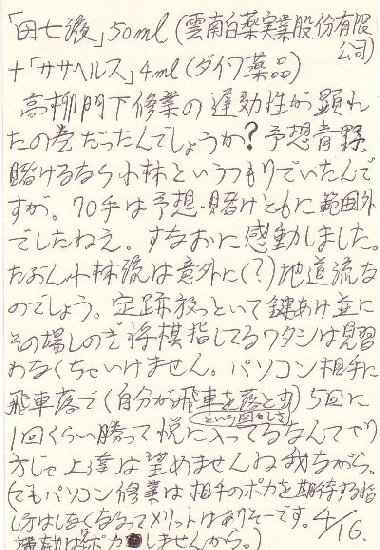 「田七液」50ml(雲南白薬実業股份有限公司)
+「ササヘルス」4ml(ダイワ薬品)
高柳門下修業の運動性が顕れ
たの巻だったんでしょうか?予想青野
賭けるなら小林というつもりでいたんで
すが。70手は予想・賭けともに範囲外
でしたねえ。すなおに感動しました。
たぶん小林流は意外に(?)地道流な
のでしょう。定跡放っといて鍵あけ並に
その場しのぎ将棋指してるワタシは見習
わなくちゃいけません。パソコン相手に
飛車落で(自分が飛車を落とす)5回に
という図々しさ
1回くらい勝って悦に入ってるなんてやり
方じゃ上達は望めませんね我ながら。
(でもパソコン修業は相手のポカを期待する指
し方はしなくなるってメリットはありそーです。4/16.
機械はポカしませんから。)